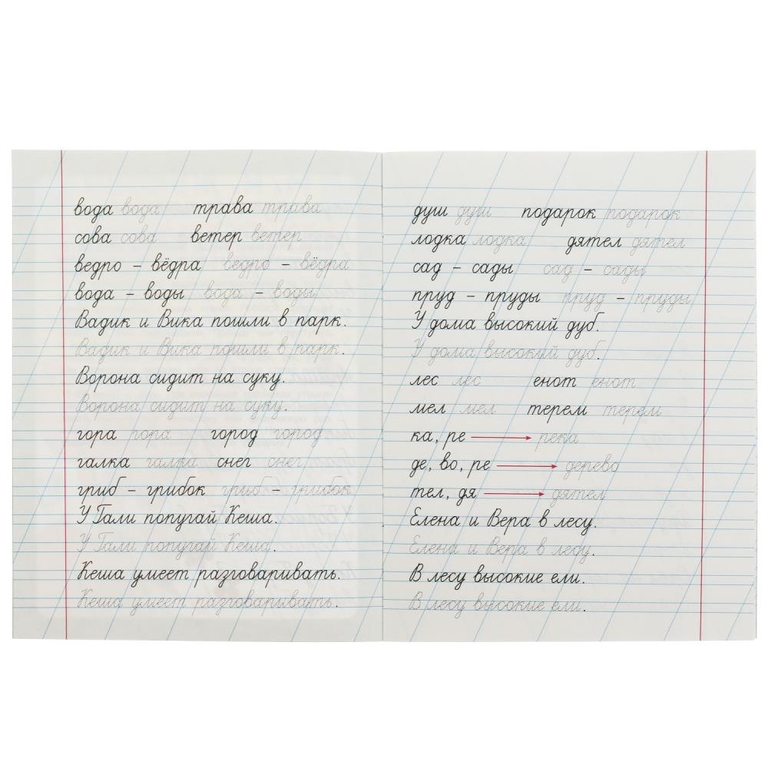 вода вода трава трава
сова сова ветер ветер
ведро – вёдра ведро – вёдра
вода – воды вода – воды
Вадик и Вика пошли в парк.
Вадик и Вика пошли в парк.
Ворона сидит на суку.
Ворона сидит на суку.
гора гора город город
галка галка снег снег
гриб – грибок гриб – грибок
У Гали попугай Кеша.
У Гали попугай Кеша.
Кеша умеет разговаривать.
Кеша умеет разговаривать.
душ душ подарок подарок
лодка лодка дятел дятел
сад – сады сад – сады
пруд – пруды пруд – пруды
У дома высокий дуб.
У дома высокий дуб.
лес лес енот енот
мел мел терем терем
ка, ре → река
де, во, ре → дерево
тел, дя → дятел
Елена и Вера в лесу.
Елена и Вера в лесу.
В лесу высокие ели.
В лесу высокие ели.